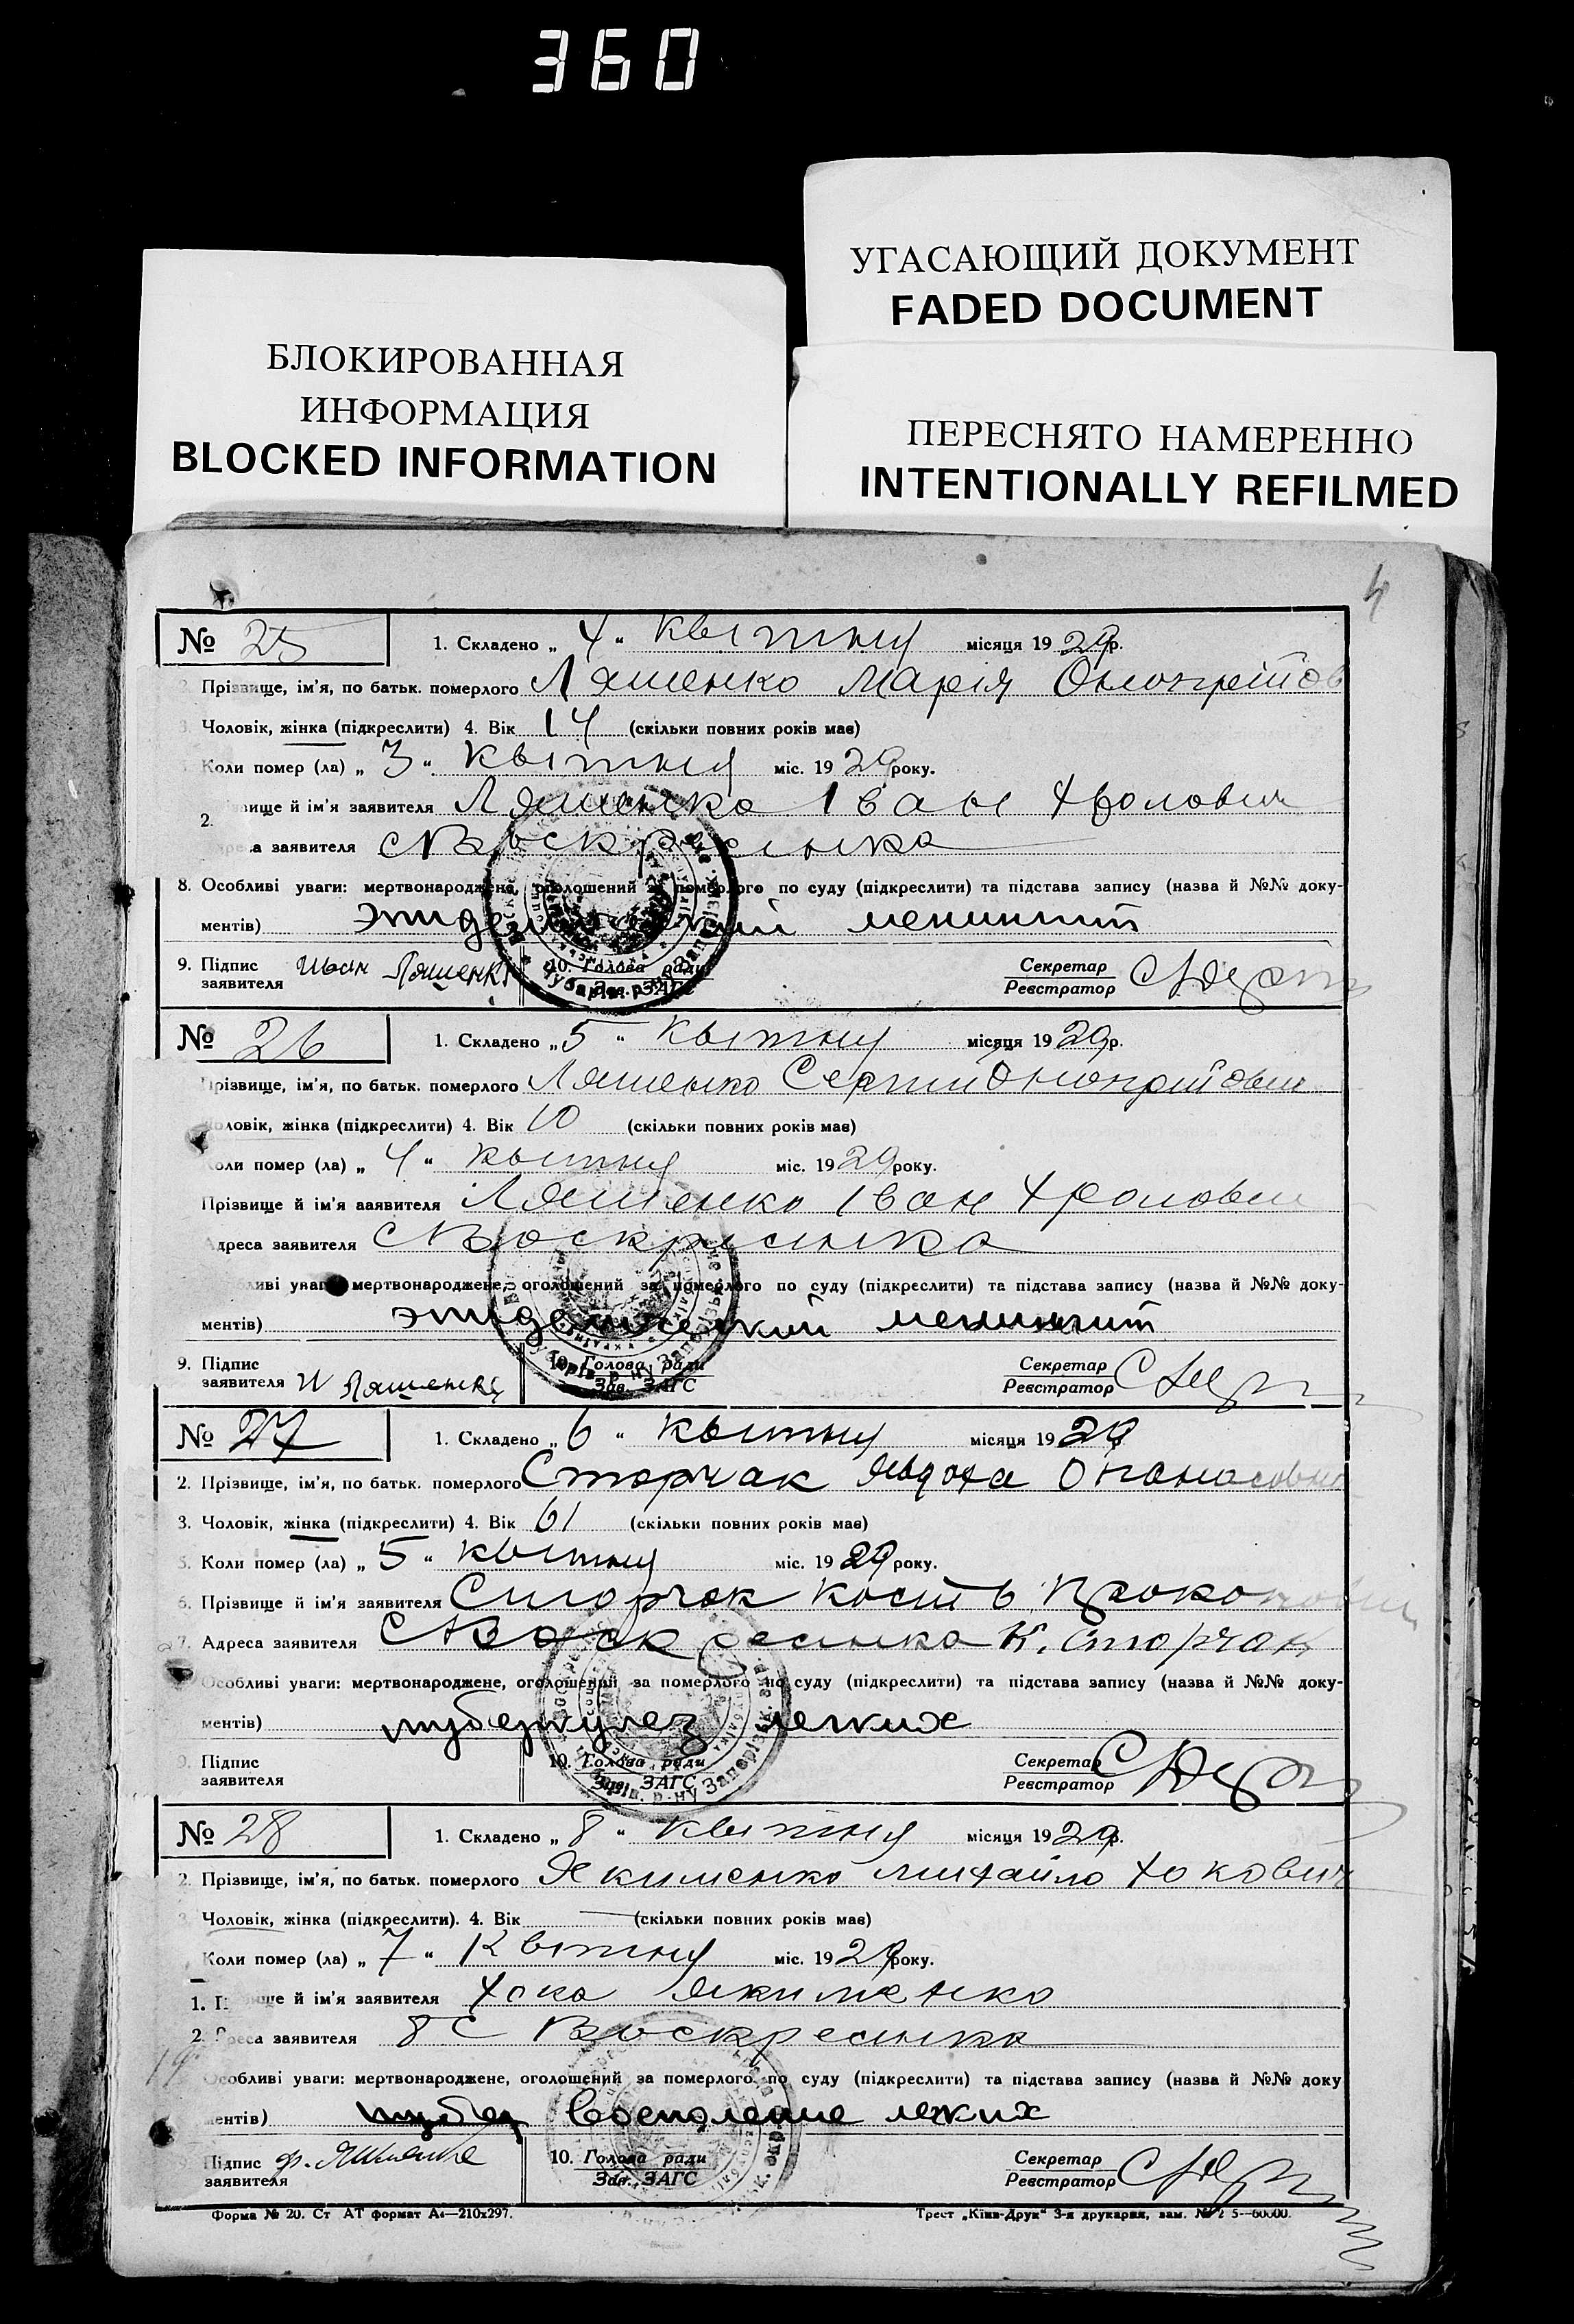 360
УГАСАЮЩИЙ ДОКУМЕНТ
FADED DOCUMENT
БЛОКИРОВАННАЯ
ИНФОРМАЦИЯ
BLOCKED INFORMATION
ПЕРЕСНЯТО НАМЕРЕННО
INTENTIONALLY REFILMED
4
№ 25 1. Складено „ 4 “ квітня місяця 1929р.
Прізвище, ім'я, по батьк. померлого Ляшенко Марія
Чоловік, жінка (підкреслити) 4. Вік 14 (скільки повних років має)
Коли помер (ла) „ 3 “ квітня міс. 1929 року.
вище й ім'я заявителя Ляшенко Іван
2. а заявителя С Воскресенка
8. Особливі уваги: мертвонароджене, оголошений за померлого по суду (підкреслити) та підстава запису (назва й №№ доку-
ментів) эпидемический менингит
9. Підпис Иван Ляшенко 10. Голова ради Секретар
заявителя Зав. ЗАГС Реєстратор
№ 26 1. Складено „ 5 “ квітня місяця 1929р.
Прізвище, ім'я, по батьк. померлого Ляшенко Сергій
Чоловік, жінка (підкреслити) 4. Вік 10 (скільки повних років має)
Коли помер (ла) „ 4 “ квітня міс. 1929 року.
Прізвище й ім'я заявителя Ляшенко Іван
Адреса заявителя С Воскресенка
мертвонароджене, оголошений за померлого по суду (підкреслити) та підстава запису (назва й №№ доку-
ментів) эпидемический менингит
9. Підпис 10. Голова ради Секретар
заявителя И Ляшенко Зав. ЗАГС Реєстратор
№ 27 1. Складено „ 6 “ квітня місяця 1929
2. Прізвище, ім'я, по батьк. померлого Сторчак Явдоха Опанасовна
3. Чоловік, жінка (підкреслити) 4. Вік 61 (скільки повних років має)
5. Коли помер (ла) „ 5 “ квітня міс. 1929 року.
6. Прізвище й ім'я заявителя Сторчак Кость
7. Адреса заявителя С Воскресенка К. Сторчак
Особливі уваги: мертвонароджене, оголошений за померлого по суду (підкреслити) та підстава запису (назва й №№ доку-
ментів) туберкулез легких
9. Підпис 10. Голова ради Секретар
заявителя Зав. ЗАГС Реєстратор
№ 28 1. Складено „ 8 “ квітня місяця 1929р.
2. Прізвище, ім'я, по батьк. померлого Якименко Михайло Хокович
3. Чоловік, жінка (підкреслити). 4. Вік — (скільки повних років має)
Коли помер (ла) „ 7 “ Квітня міс. 1929 року.
1. П ще й ім'я заявителя Хока Якименко
2. реса заявителя 8 С Воскресенка
Особливі уваги: мертвонароджене, оголошений за померлого по суду (підкреслити) та підстава запису (назва й №№ доку
ментів) Воспаление легких
Підпис 10. Голова ради Секретар
заявителя Зав. ЗАГС Реєстратор
Форма № 20. Ст АТ формат А4—210х297. Трест „Київ-Друк“ 3-я друкарня, зам.